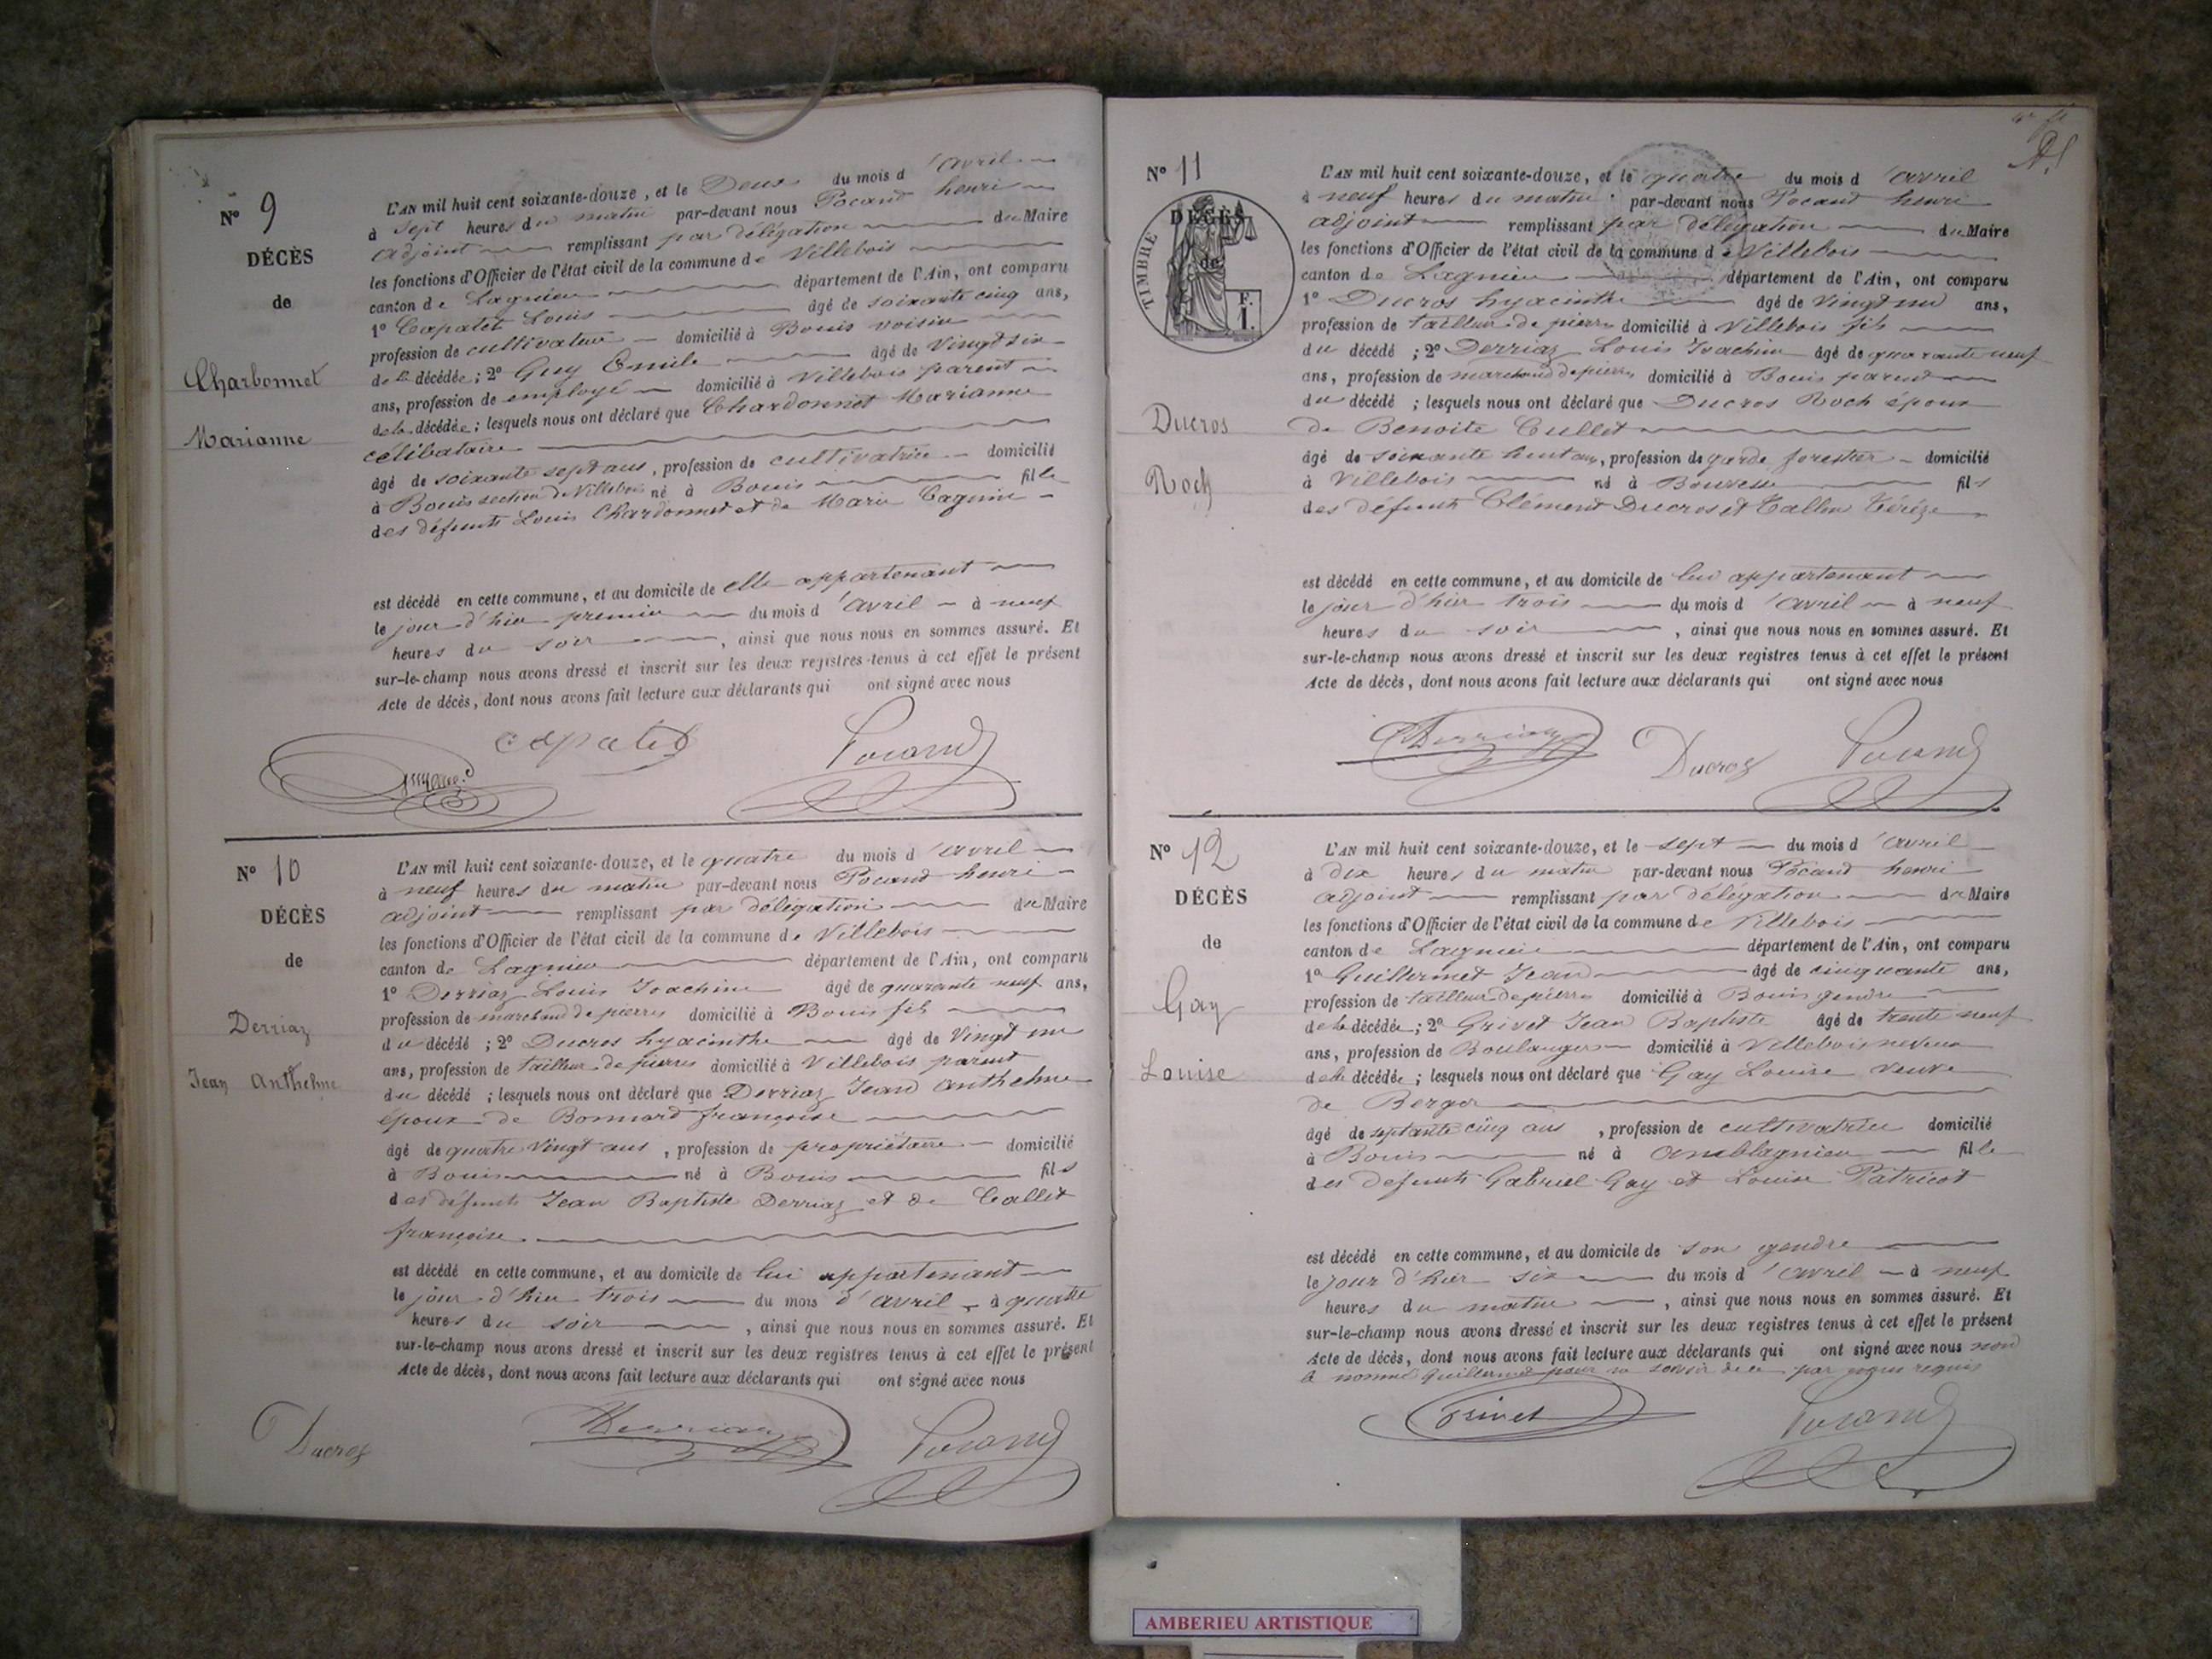 N° 9
DÉCÈS
de
Charbonnet
Marianne
L'AN mil huit cent soixante-douze, et le Deux du mois d'avril
à sept heures du matin par-devant nous Pocand henri
adjoint remplissant par délégation du Maire
les fonctions d'Officier de l'état civil de la commune de Villebois
canton de Lagnieu département de l'Ain, ont comparu
1° Capatet Louis âgé de soixante cinq ans,
profession de cultivateur domicilié à Bouis voisin
de la décédée; 2° Guy Emile âgé de vingt six
ans, profession de employé domicilié à Villebois parent
de la décédée; lesquels nous ont déclaré que Chardonnet Marianne
célibataire
âgé de soixante sept ans, profession de cultivatrice domicilié
à Bouis section de Villebois né à Bouis fille
des défunts Louis Chardonnet et de Marie Cagnin
est décédé en cette commune, et au domicile de elle appartenant
le jour d'hier premier du mois d'avril à neuf
heures du soir, ainsi que nous nous en sommes assuré. Et
sur-le-champ nous avons dressé et inscrit sur les deux registres tenus à cet effet le présent
Acte de décès, dont nous avons fait lecture aux déclarants qui ont signé avec nous
capatet Pocand
N° 10
DÉCÈS
de
Derriaz
Jean Anthelme
L'AN mil huit cent soixante-douze, et le quatre du mois d'avril
à neuf heures du matin par-devant nous Pocand henri
adjoint remplissant par délégation du Maire
les fonctions d'Officier de l'état civil de la commune de Villebois
canton de Lagnieu département de l'Ain, ont comparu
1° Derriaz Louis Joachim âgé de quarante neuf ans,
profession de marchand de pierres domicilié à Bouis fils
du décédé; 2° Ducros hyacinthe âgé de vingt un
ans, profession de tailleur de pierres domicilié à Villebois parent
du décédé; lesquels nous ont déclaré que Derriaz Jean anthelme
époux de Bonnard françoise
âgé de quatre vingt ans, profession de propriétaire domicilié
à Bouis né à Bouis fils
des défunts Jean Baptiste Derriaz et de Callet
françoise
est décédé en cette commune, et au domicile de lui appartenant
le jour d'hier trois du mois d'avril à quatre
heures du soir, ainsi que nous nous en sommes assuré. Et
sur-le-champ nous avons dressé et inscrit sur les deux registres tenus à cet effet le présent
Acte de décès, dont nous avons fait lecture aux déclarants qui ont signé avec nous
Ducros Derriaz Pocand
N° 11
DÉCÈS
de
TIMBRE
F.
I.
Ducros
Roch
L'AN mil huit cent soixante-douze, et le quatre du mois d'avril
à neuf heures du matin par-devant nous Pocand henri
adjoint remplissant par délégation du Maire
les fonctions d'Officier de l'état civil de la commune de Villebois
canton de Lagnieu département de l'Ain, ont comparu
1° Ducros hyacinthe âgé de vingt un ans,
profession de tailleur de pierres domicilié à Villebois fils
du décédé; 2° Derriaz Louis Joachim âgé de quarante neuf
ans, profession de marchand de pierres domicilié à Bouis parent
du décédé; lesquels nous ont déclaré que Ducros Roch époux
de Benoite Cullet
âgé de soixante huit ans, profession de garde forestier domicilié
à Villebois né à fils
des défunts Clément Ducros et Térèze
est décédé en cette commune, et au domicile de lui appartenant
le jour d'hier trois du mois d'avril à neuf
heures du soir, ainsi que nous nous en sommes assuré. Et
sur-le-champ nous avons dressé et inscrit sur les deux registres tenus à cet effet le présent
Acte de décès, dont nous avons fait lecture aux déclarants qui ont signé avec nous
Derriaz Ducros Pocand
N° 12
DÉCÈS
de
Gay
Louise
L'AN mil huit cent soixante-douze, et le sept du mois d'avril
à dix heures du matin par-devant nous Pocand henri
adjoint remplissant par délégation du Maire
les fonctions d'Officier de l'état civil de la commune de Villebois
canton de Lagnieu département de l'Ain, ont comparu
1° Guillermet Jean âgé de cinquante ans,
profession de tailleur de pierres domicilié à Bouis gendre
de la décédée; 2° Grivet Jean Baptiste âgé de trente neuf
ans, profession de Boulanger domicilié à Villebois neveu
de la décédée; lesquels nous ont déclaré que Gay Louise veuve
de Berger
âgé de septante cinq ans, profession de cultivatrice domicilié
à Bouis né à amblagnieu fille
des défunts Gabriel Gay et Louise Patricot
est décédé en cette commune, et au domicile de son gendre
le jour d'hier six du mois d'avril à neuf
heures du matin, ainsi que nous nous en sommes assuré. Et
sur-le-champ nous avons dressé et inscrit sur les deux registres tenus à cet effet le présent
Acte de décès, dont nous avons fait lecture aux déclarants qui ont signé avec nous non
le nommé Guillermet pour ne savoir de ce par nous requis
Grivet Pocand
AMBERIEU ARTISTIQUE